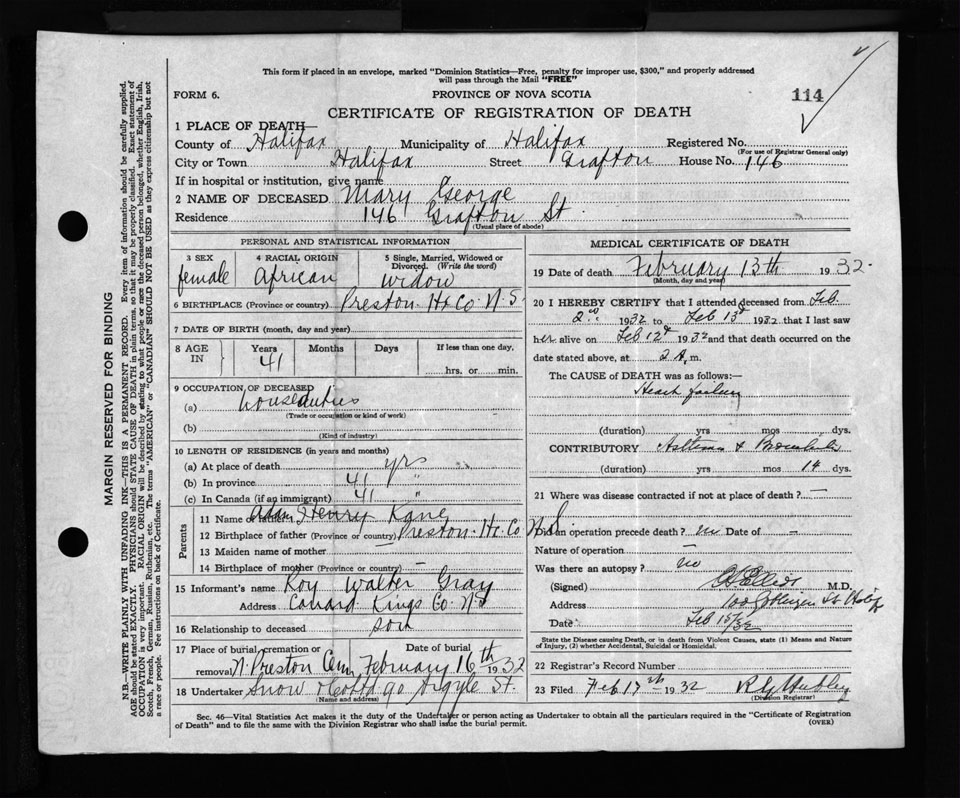 This form if placed in an envelope, marked "Dominion Statistics—Free, penalty for improper use, $300," and properly addressed
will pass through the Mail "FREE"
FORM 6.
PROVINCE OF NOVA SCOTIA
114
CERTIFICATE OF REGISTRATION OF DEATH
1 PLACE OF DEATH
County of Halifax Municipality of Halifax Registered No.
(For use of Registrar General only)
City or Town Halifax Street Grafton House No. 146
If in hospital or institution, give name
2 NAME OF DECEASED Mary George
Residence 146 Grafton St
(Usual place of abode)
PERSONAL AND STATISTICAL INFORMATION
3 SEX female
4 RACIAL ORIGIN African
5 Single, Married, Widowed or Divorced. (Write the word) Widow
6 BIRTHPLACE (Province or country) Preston Hx Co N.S.
7 DATE OF BIRTH (month, day and year)
8 AGE IN Years 41 Months Days If less than one day, hrs. or min.
9 OCCUPATION OF DECEASED
(a) house duties
(Trade or occupation or kind of work)
(b)
(Kind of industry)
10 LENGTH OF RESIDENCE (in years and months)
(a) At place of death yrs
(b) In province 41 "
(c) In Canada (if an immigrant) 41 "
Parents
11 Name of father Henry Kane
12 Birthplace of father (Province or country) Preston Hx Co N.S
13 Maiden name of mother —
14 Birthplace of mother (Province or country) —
15 Informant's name Roy Walter Gray
Address Kings Co. N.S
16 Relationship to deceased son
17 Place of burial, cremation or removal N. Preston Cem Date of burial February 16th 1932
18 Undertaker Snow Argyle St.
(Name and address)
MEDICAL CERTIFICATE OF DEATH
19 Date of death February 13th 1932.
(Month, day and year)
20 I HEREBY CERTIFY that I attended deceased from Feb.
2nd 1932 to Feb 13th 1932 that I last saw
her alive on Feb 12th 1932 and that death occurred on the
date stated above, at 2 A.m.
The CAUSE of DEATH was as follows:—
Heart failure
(duration) yrs mos dys.
CONTRIBUTORY Asthma & Bronchitis
(duration) yrs mos 14 dys.
21 Where was disease contracted if not at place of death? —
Did an operation precede death? no Date of —
Nature of operation —
Was there an autopsy? no
(Signed) M.D.
Address St
Date Feb 15/32
State the Disease causing Death, or in death from Violent Causes, state (1) Means and Nature
of Injury, (2) whether Accidental, Suicidal or Homicidal.
22 Registrar's Record Number
23 Filed Feb 17th 1932
(Division Registrar)
Sec. 46—Vital Statistics Act makes it the duty of the Undertaker or person acting as Undertaker to obtain all the particulars required in the "Certificate of Registration
of Death" and to file the same with the Division Registrar who shall issue the burial permit.
(OVER)
MARGIN RESERVED FOR BINDING
N.B.—WRITE PLAINLY WITH UNFADING INK—THIS IS A PERMANENT RECORD. Every item of information should be carefully supplied.
AGE should be stated EXACTLY. PHYSICIANS should STATE CAUSE OF DEATH in plain terms, so that it may be properly classified. Exact statement of
OCCUPATION is very important. RACIAL ORIGIN will be described by stating to what people or race the deceased person belonged, whether English, Irish,
Scotch, French, German, Russian, Ruthenian, etc. The terms "AMERICAN" or "CANADIAN" SHOULD NOT BE USED as they express citizenship but not
a race or people. Fee instructions on back of Certificate.